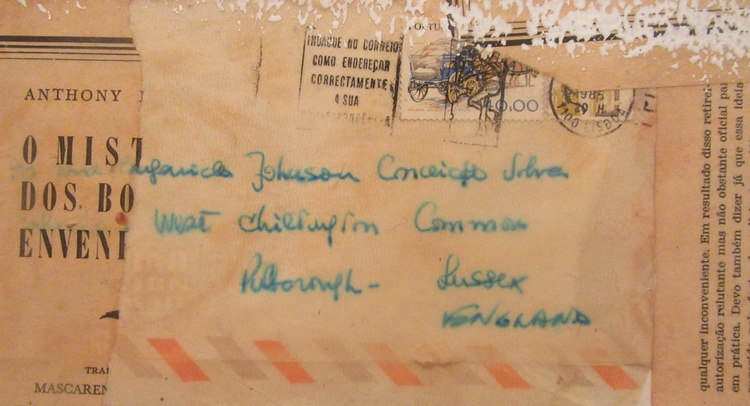 INDAQUE NO CORREIO
COMO ENDEREÇAR
CORRECTAMENTE
A SUA
40.00
1985
20 H
1100 LISBOA
ANTHONY
O MIST
DOS BO
ENVENI
Johnson Conceição Silva
West Chiltington Common
Pulborough - Sussex
ENGLAND
TRA
MASCAREN
qualquer inconveniente. Em resultado disso retire
autorização relutante mas não obstante oficial pa
em prática. Devo também dizer já que essa ideia